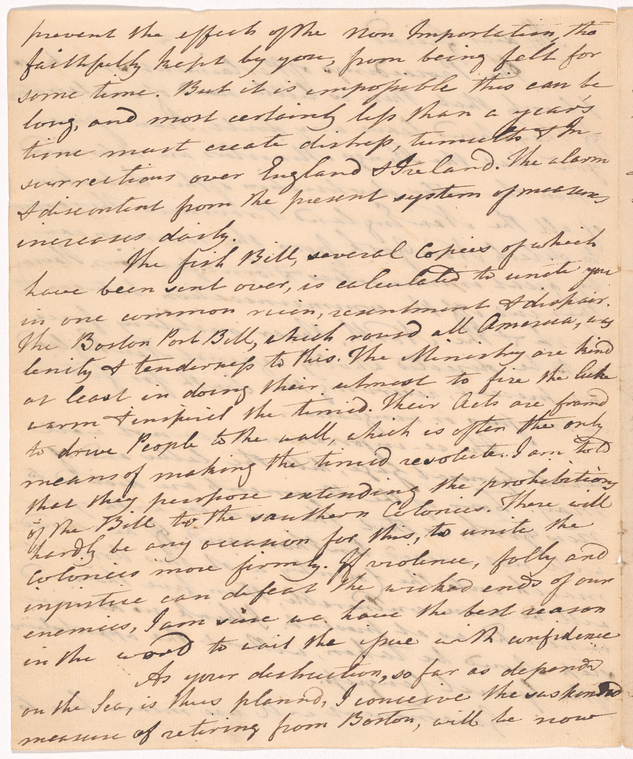 prevent the effects of the Non Importation, tho
faithfully kept by you, from being felt for
some time. But it is impossible this can be
long, and most certainly less than a years
time must create distress, tumults & In-
surrections over England & Ireland. The alarm
& discontent from the present system of measures
increases daily.
The fish Bill, several Copies of which
have been sent over, is calculated to unite you
in one common ruin, resentment & despair.
The Boston Port Bill, which rousd all America, was
lenity & tenderness to this. The Ministry are kind
at least in doing their utmost to fire the luke
warm & inspirit the timid. Their Acts are framd
to drive People to the wall, which is often the only
means of making the timid resolute. I am told
that they purpose extending the prohibitions
of the Bill to the southern Colonies. There will
hardly be any occasion for this, to unite the
Colonies more firmly. If violence, folly and
injustice can defeat the wicked ends of our
enemies, I am sure we have the best reason
in the world to wait the issue with confidence
As your destruction, so far as depends
on the Sea, is thus plannd, I conceive the suspended
measure of retiring from Boston, will be now